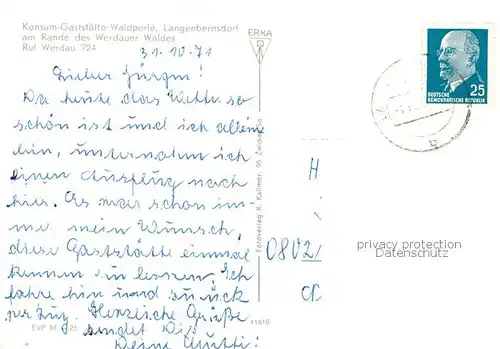 Konsum-Gaststätte Waldperle, Langenbernsdorf
am Rande des Werdauer Waldes
Ruf Werdau 724
31.10.71
ERKA
Lieber Jürgen!
Da heute das Wetter so
schön ist und ich allein
bin, unternahm ich
einen Ausflug nach
hier. Es war schon im-
mer mein Wunsch,
diese Gaststätte einmal
kennen zu lernen. Ich
fahre hin und zurück
per Zug. Herzische Grüße
sendet Dir
Deine Mutti!
EVP M 25
11610
Fotoverlag R. Kallmer, 95 Zwickau
25
DEUTSCHE
DEMOKRATISCHE REPUBLIK
H
0802
privacy protection
Datenschutz